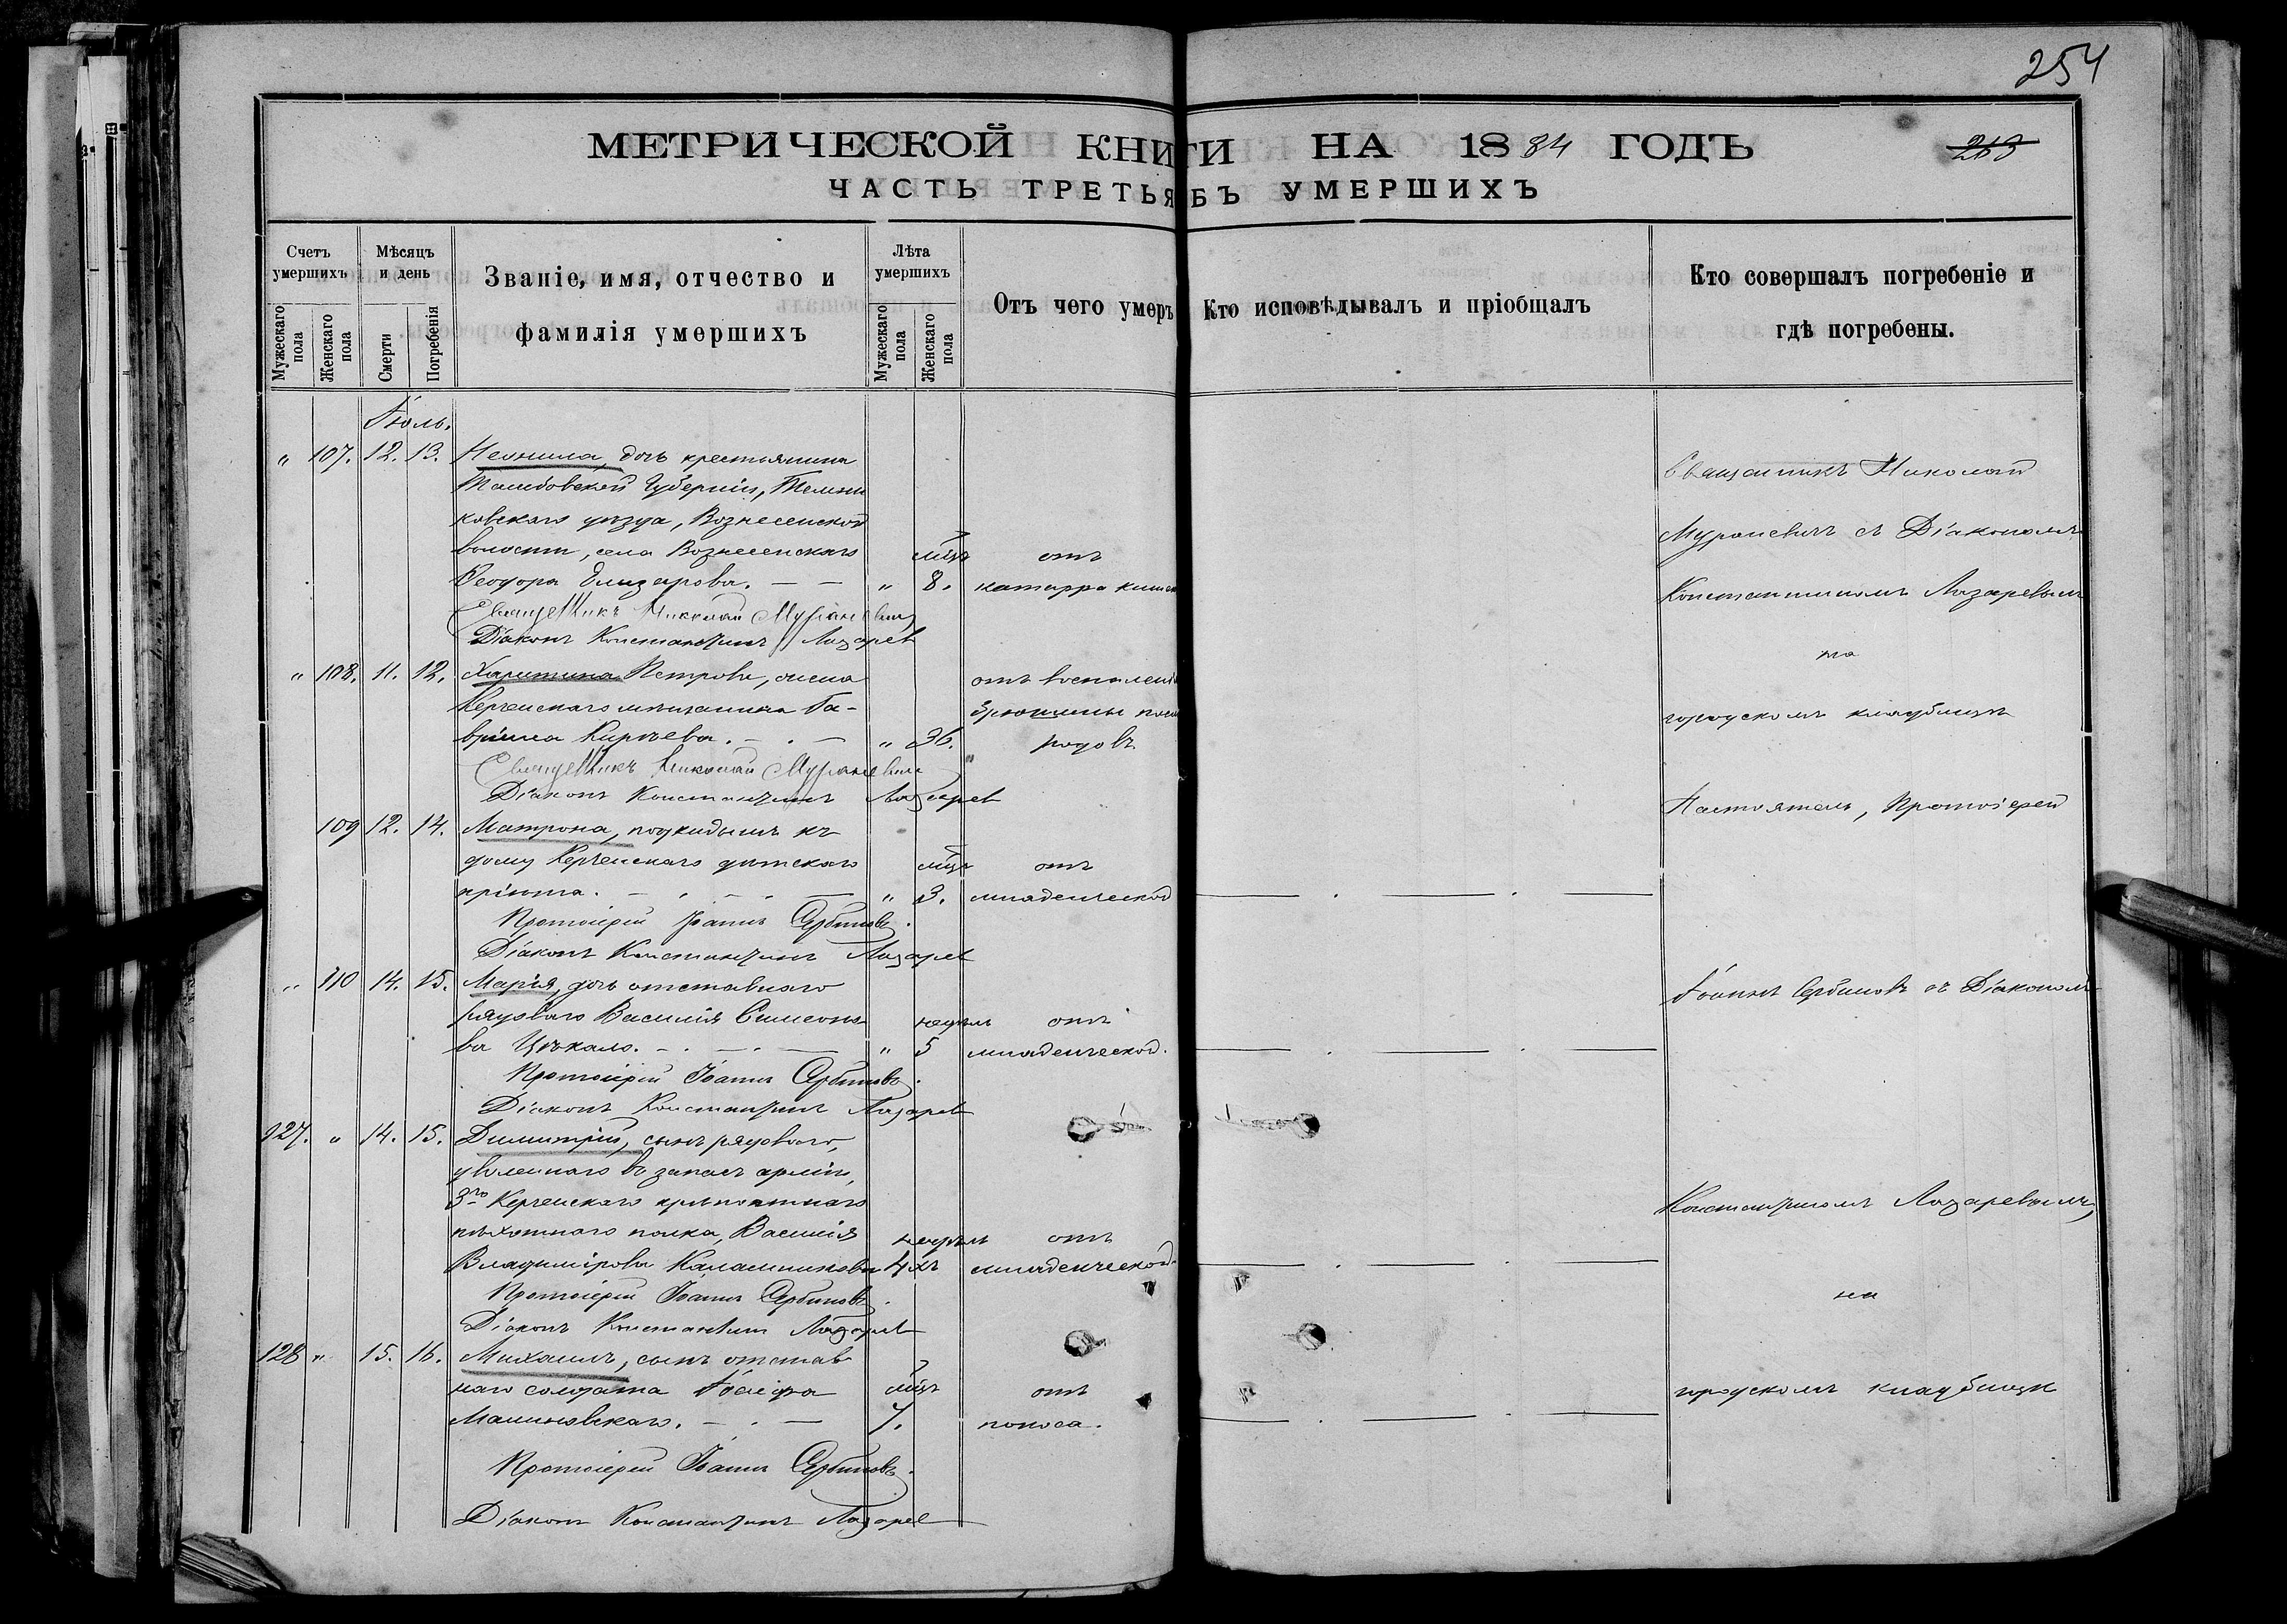 254
МЕТРИЧЕСКОЙ КНИГИ НА 1884 ГОДЪ
213
ЧАСТЬ ТРЕТЬЯ УМЕРШИХЪ
Счетъ умершихъ
Мужескаго пола
Женскаго пола
Мѣсяцъ и день
Смерти
Погребенія
Званіе, имя, отчество и
фамилія умершихъ
Лѣта умершихъ
Мужескаго пола
Женскаго пола
Отъ чего умеръ
Кто исповѣдывалъ и пріобщалъ
Кто совершалъ погребеніе и
гдѣ погребены.
Іюль.
" 107. 12. 13. Неонила, дочь крестьянина
Тамбовской Губерніи, Темни
ковскаго уѣзда, Вознесенской
волости, села Вознесенскаго мцъ отъ
Ѳеодора Елизарова. — — " 8. катарра кишек
Священникъ Николай Мураневич
Діаконъ Константинъ Лазарев
" 108. 11. 12. Харитина Петрова, жена отъ воспаленія
Керченскаго мѣщанина Га- брюшины посл
вріила Киреева. — . — " 36. родовъ
Священникъ Николай Мураневич
Діаконъ Константинъ Лазарев
109 12. 14. Матрона, подкидышъ къ
дому Керченскаго дѣтскаго мцъ отъ
пріюта. — . — . — " 3. младенческой — . — . —
Протоіерей Іоаннъ Сербиновъ.
Діаконъ Константинъ Лазарев
" 110 14. 15. Марія, дочь отставнаго
рядоваго Василія Симеоно недѣль отъ
ва Цѣкало. — . — . — " 5 младенческой. — . — . —
Протоіерей Іоаннъ Сербиновъ.
Діаконъ Константинъ Лазарев
127. " 14. 15. Димитрій, сынъ рядоваго,
уволеннаго въ запасъ арміи,
3го Керченскаго крѣпостнаго
пѣхотнаго полка, Василія недѣль отъ
Владимірова Каланникова 4хъ младенческой. — . — . —
Протоіерей Іоаннъ Сербиновъ.
Діаконъ Константинъ Лазарев
128 " 15. 16. Михаилъ, сынъ отстав
наго солдата Іосифа мцъ отъ
Малиновскаго. — . — 7. поноса. — . — . —
Протоіерей Іоаннъ Сербиновъ.
Діаконъ Константинъ Лазарев
Священникъ Николай
Мураневичъ съ Діакономъ
Константиномъ Лазаревымъ
на
городскомъ кладбищѣ
Настоятель, Протоіерей
Іоаннъ Сербиновъ съ Діакономъ
Константиномъ Лазаревымъ,
на
городскомъ кладбищѣ